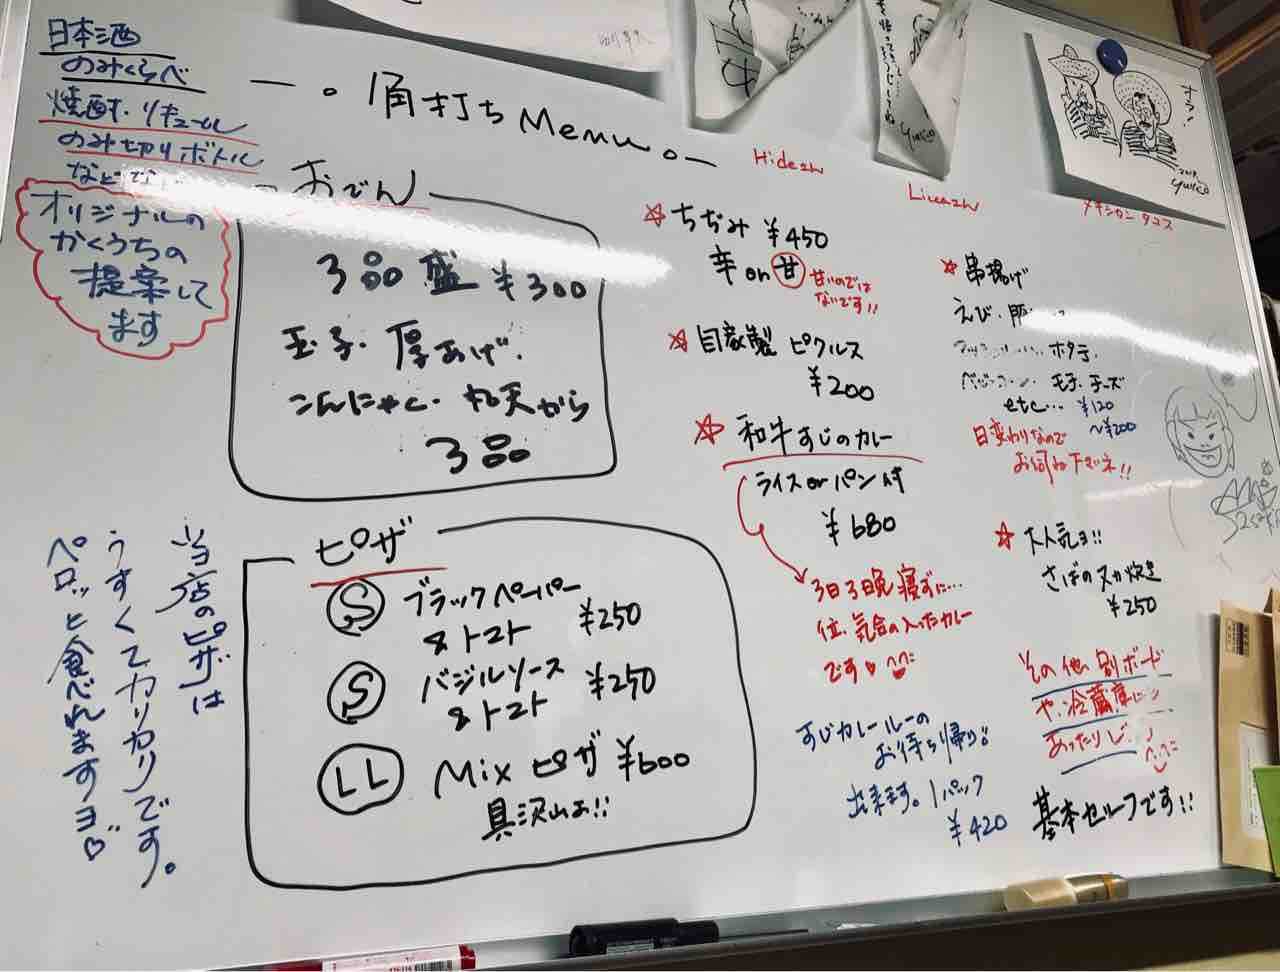 日本酒
のみくらべ
焼酎・リキュール
のみ切りボトル
など
オリジナルの
かくうちの
提案して
ます
角打ちMenu
おでん
3品盛 ¥300
玉子・厚あげ・
こんにゃく・丸天から
3品
ピザ
S ブラックペーパー
&トマト ¥250
S バジルソース
&トマト ¥250
LL Mixピザ ¥600
具沢山お!!
当店のピザは
うすくてカリカリです。
ペロッと食べれますヨ♡
Hidezh
☆ちぢみ ¥450
辛or甘
甘いのでは
ないです!!
☆自家製ピクルス
¥200
☆和牛すじのカレー
ライスorパン付
¥680
3日3晩寝ずに…
位、気合の入ったカレー
です♡
すじカレールーの
お待ち帰り
出来ます。1パック
¥420
オラ!
2018
yukico
メキシカンタコス
☆串揚げ
えび・豚
ホタテ・
玉子・チーズ
etc… ¥120
〜¥200
日変わりなので
お伺い下さいネ!!
☆大人気ヨ!!
さばのヌカ炊き
¥250
その他別ボード
や、冷蔵庫に
あったりし
基本セルフです!!